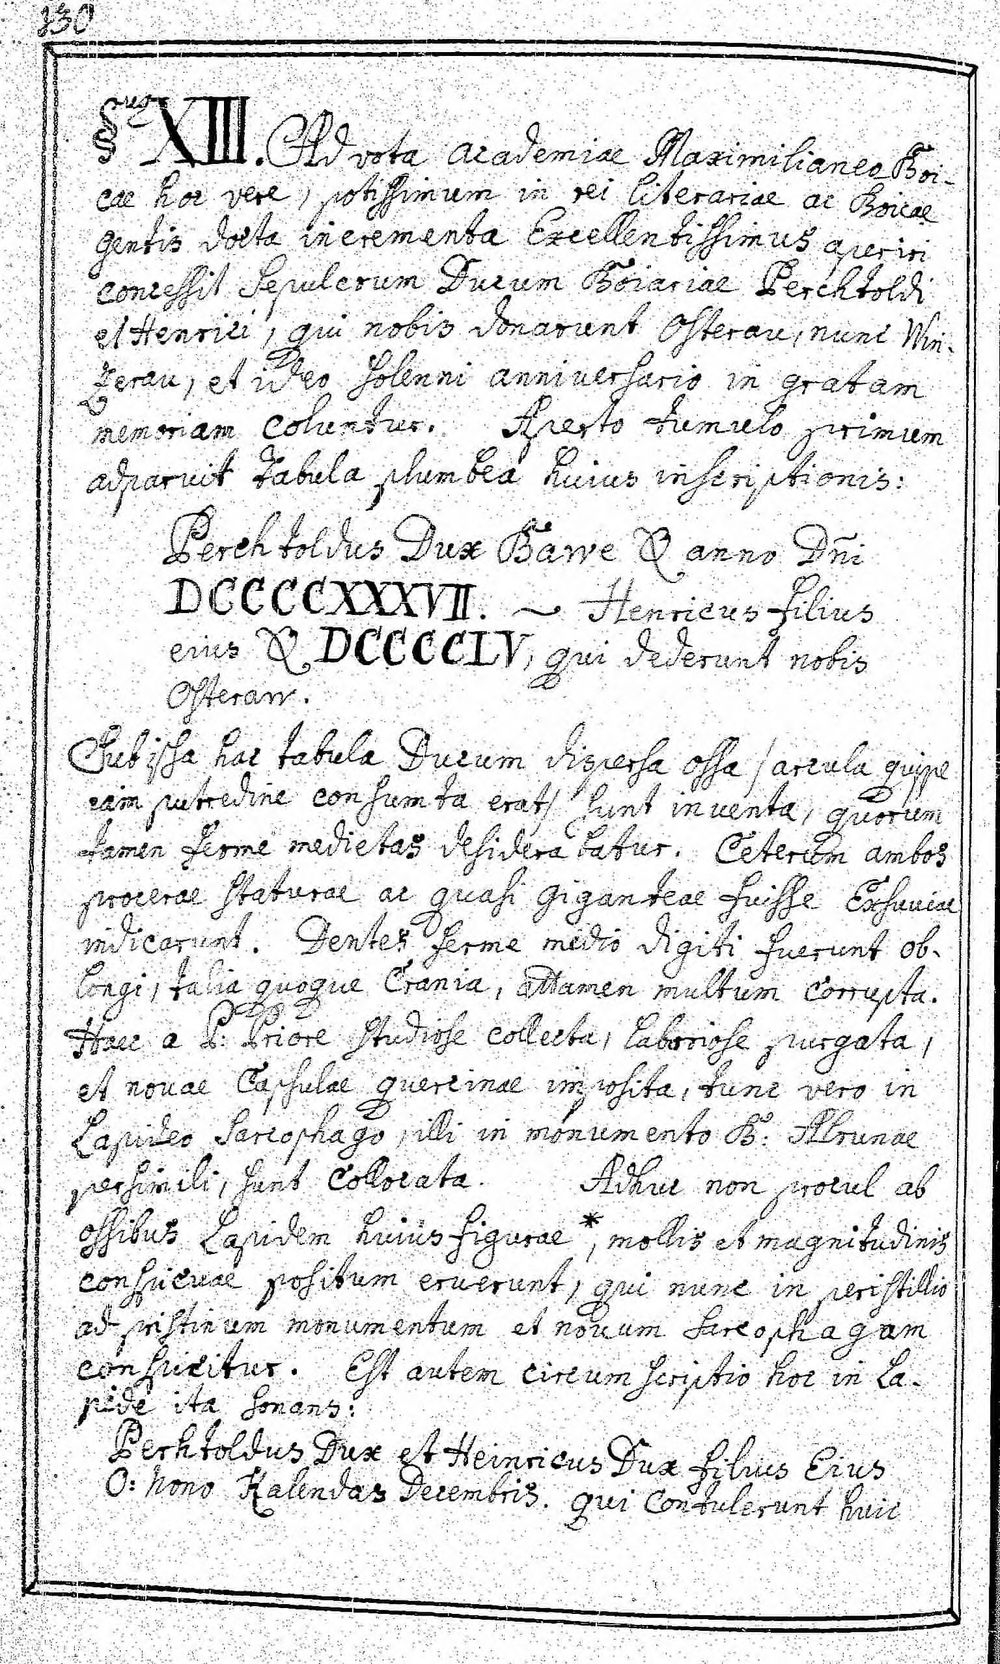 130
§us XIII. Ad vota academiae Maximilianeo Boi-
cae hoc vere, potissimum in rei literariae ac Boicae
gentis docta incrementa Excellentissimus aperiri
concessit Sepulcrum Ducum Boiariae Perchtoldi
et Henrici, qui nobis donarunt Osterau, nunc Win-
zerau, et ideo solenni anniversario in gratam
memoriam coluntur. Aperto tumulo primum
adparuit tabula plumbea huius inscriptionis:
Perchtoldus Dux Bawe & anno Dñi
DCCCCXXXVII. ~ Henricus filius
eius & DCCCCLV, qui dederunt nobis
Osteraw.
Sub ipsa hac tabula Ducum dispersa ossa /arcula quippe
eam putredine consumta erat/ sunt inventa, quorum
tamen ferme medietas desiderabatur. Ceterum ambos
procerae staturae ac quasi giganteae fuisse Exuviae
indicarunt. Dentes ferme medio digiti fuerunt ob-
longi, talia quoque Crania, attamen multum corrupta.
Haec a P: Priore studiose collecta, laboriose purgata,
et novae Capsulae quercinae imposita, tunc vero in
Lapideo Sarcophago, illi in monumento B: Alrunae
persimili, sunt Collocata. Adhuc non procul ab
ossibus Lapidem huius figurae *, mollis et magnitudinis
conspicuae positum eruerunt, qui nunc in peristillio
ad pristinum monumentum et novum Sarcophagam
conspicitur. Est autem circumscriptio hoc in La-
pide ita sonans:
Perhtoldus Dux et Heinricus Dux filius Eius
O: Nono Kalendas Decembris. qui Contulerunt huic